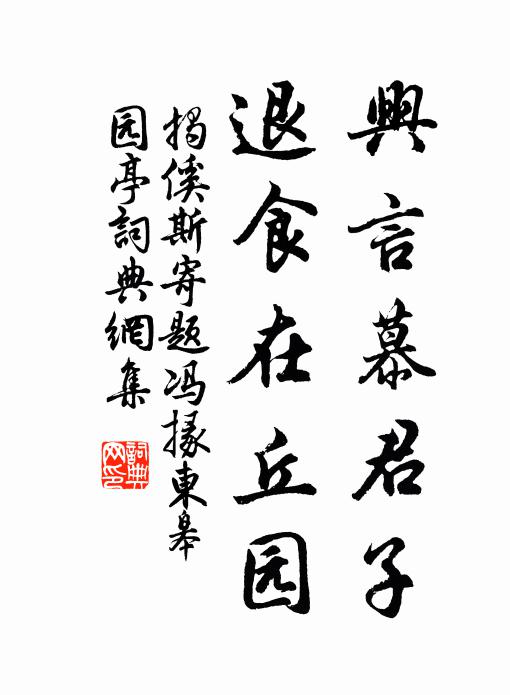 興言慕君子
退食在丘园
揭傒斯寄题冯掾東皋
园亭詞典網集
詞典网印